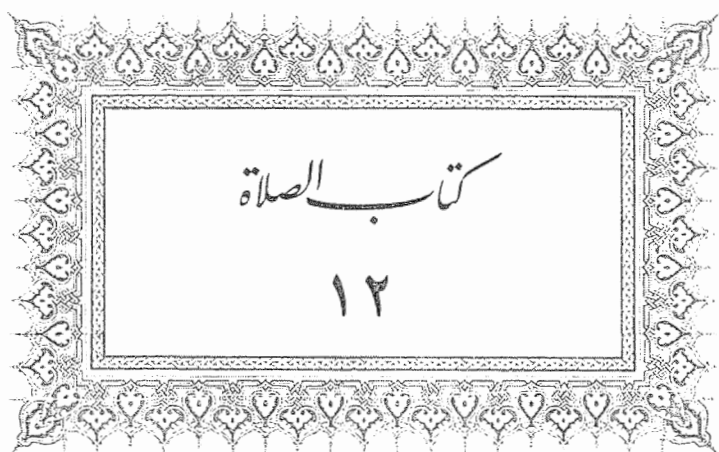 كتاب الصلاة
١٢